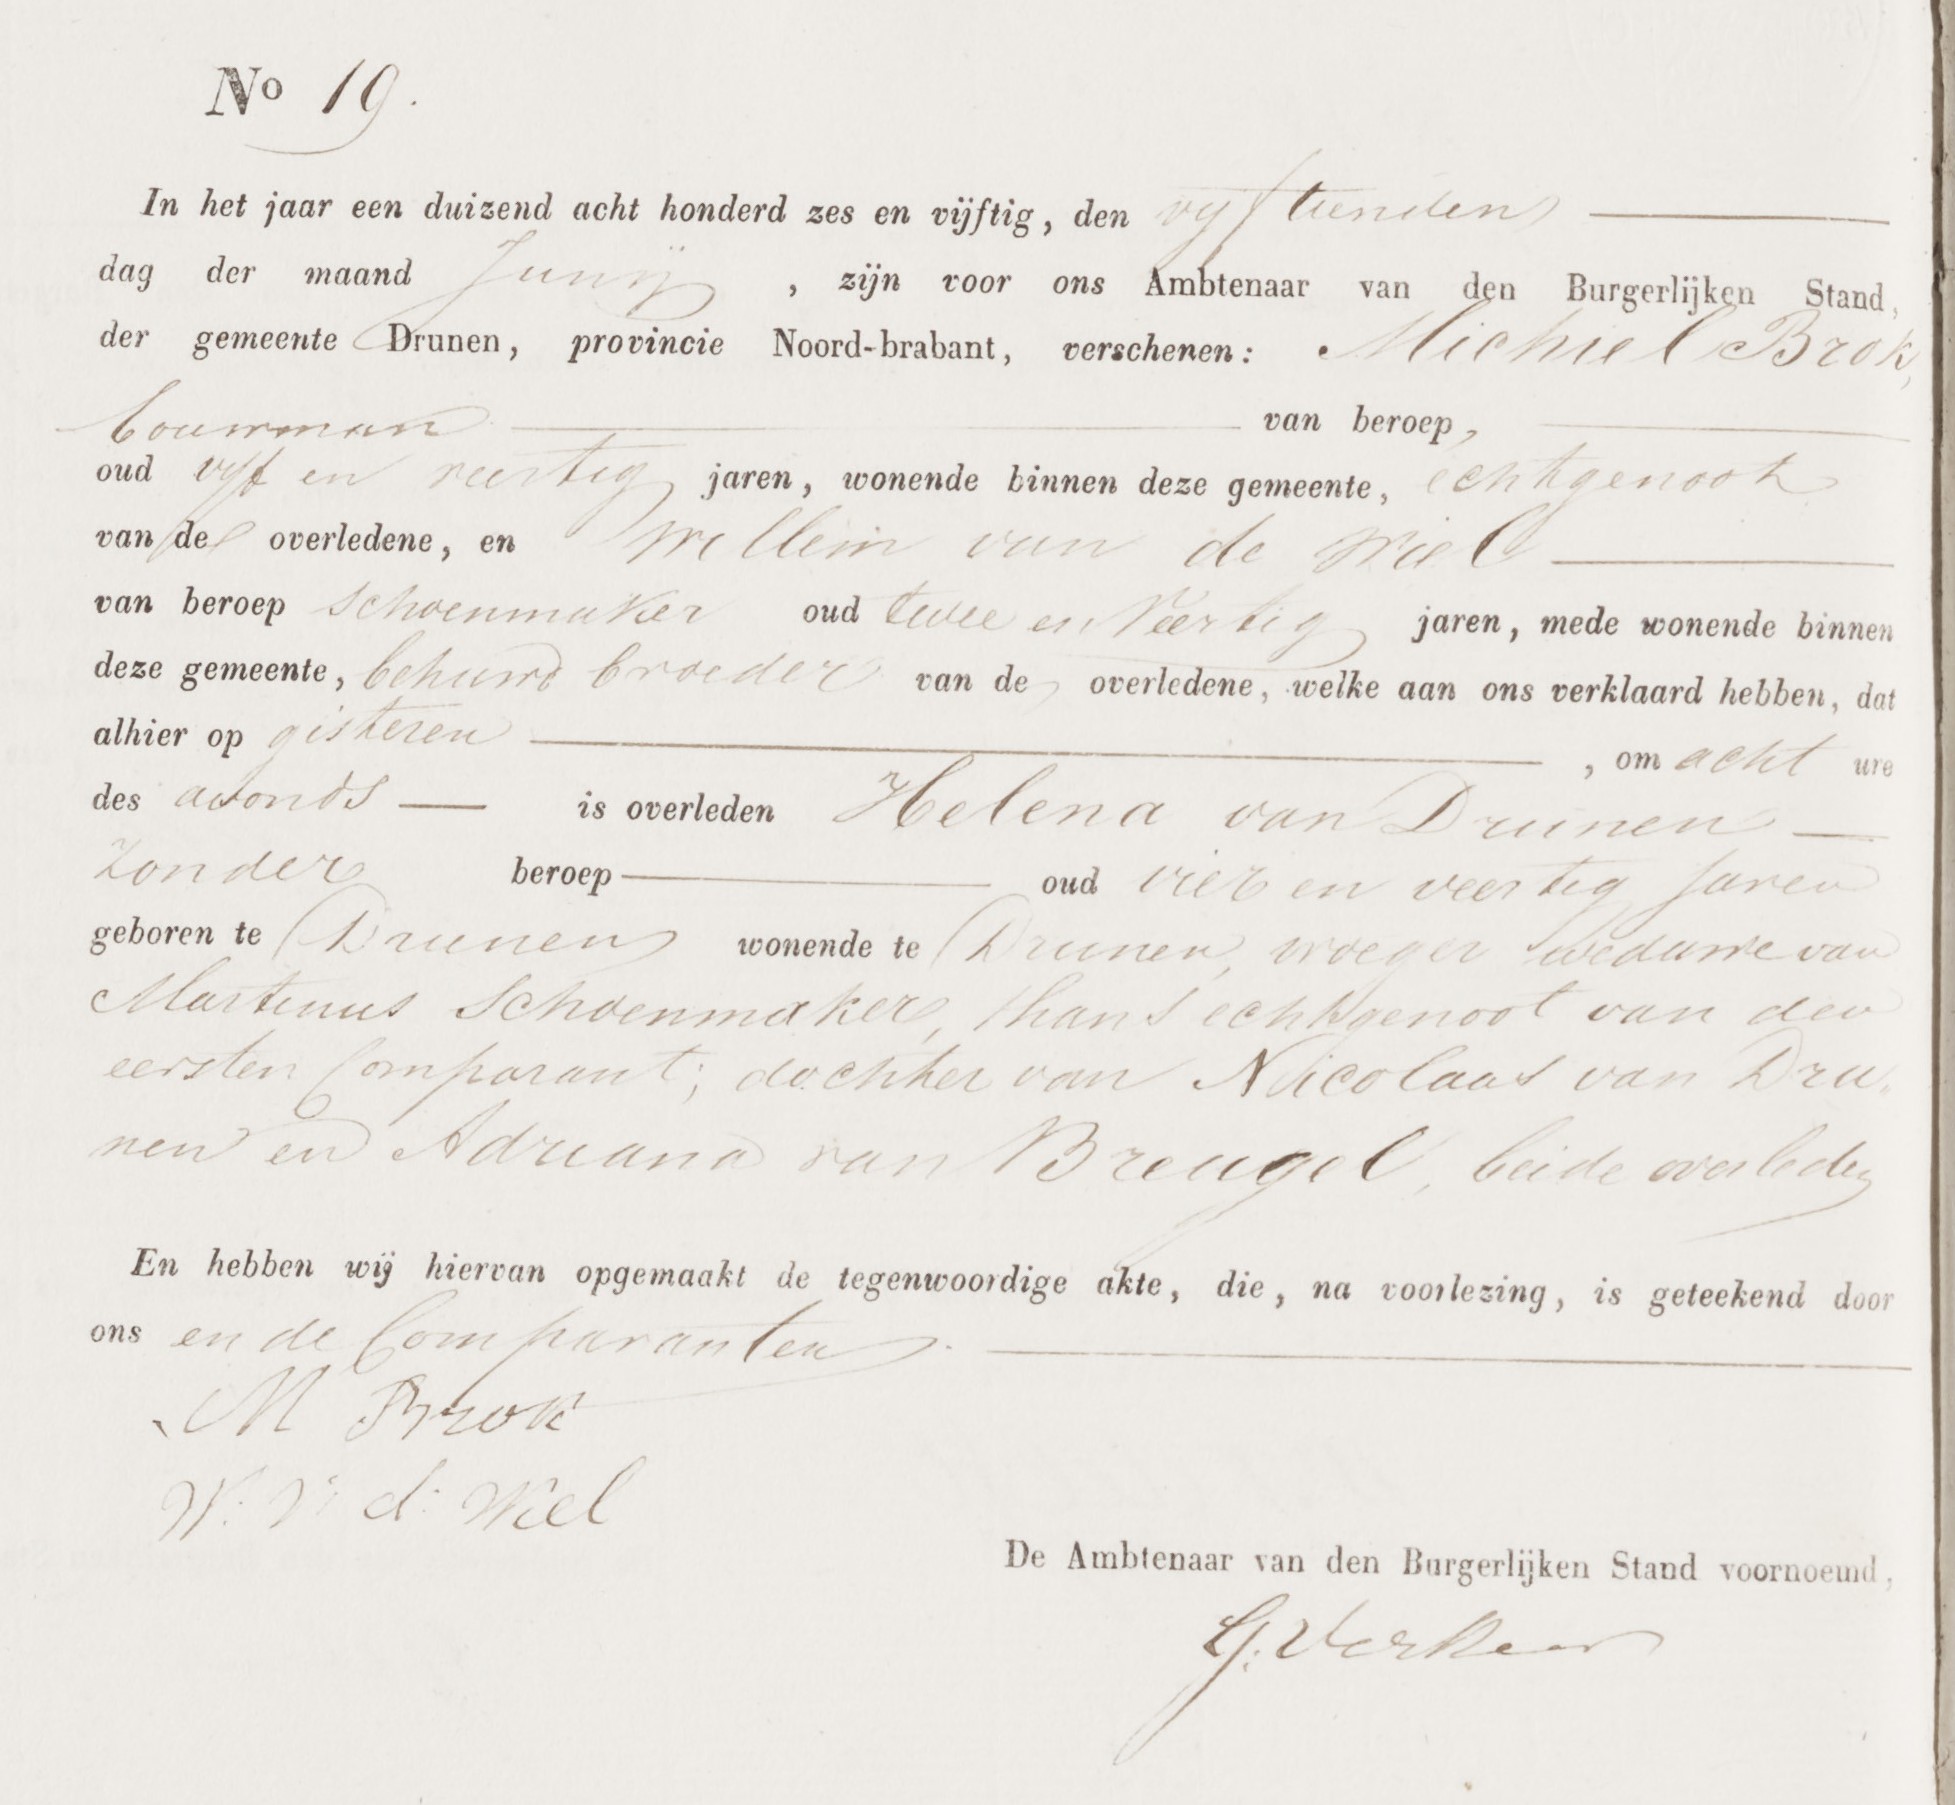 No 19.
In het jaar een duizend acht honderd zes en vijftig, den vyftienden
dag der maand Junij, zijn voor ons Ambtenaar van den Burgerlijken Stand,
der gemeente Drunen, provincie Noord-brabant, verschenen: Michiel Brok,
bouwman van beroep,
oud vyf en veertig jaren, wonende binnen deze gemeente, echtgenoot
van de overledene, en Willem van de Wiel
van beroep schoenmaker oud twee en Veertig jaren, mede wonende binnen
deze gemeente, behuwd broeder van de overledene, welke aan ons verklaard hebben, dat
alhier op gisteren, om acht ure
des avonds is overleden Helena van Drunen
zonder beroep oud vier en veertig jaren
geboren te Drunen wonende te Drunen, vroeger weduwe van
Martinus Schoenmaker, thans echtgenoot van den
eersten Comparant; dochter van Nicolaas van Dru-
nen en Adriana van Breugel, beide overleden
En hebben wij hiervan opgemaakt de tegenwoordige akte, die, na voorlezing, is geteekend door
ons en de Comparanten.
M Brok
W. V. d. Wiel
De Ambtenaar van den Burgerlijken Stand voornoemd,
G. Verkeer